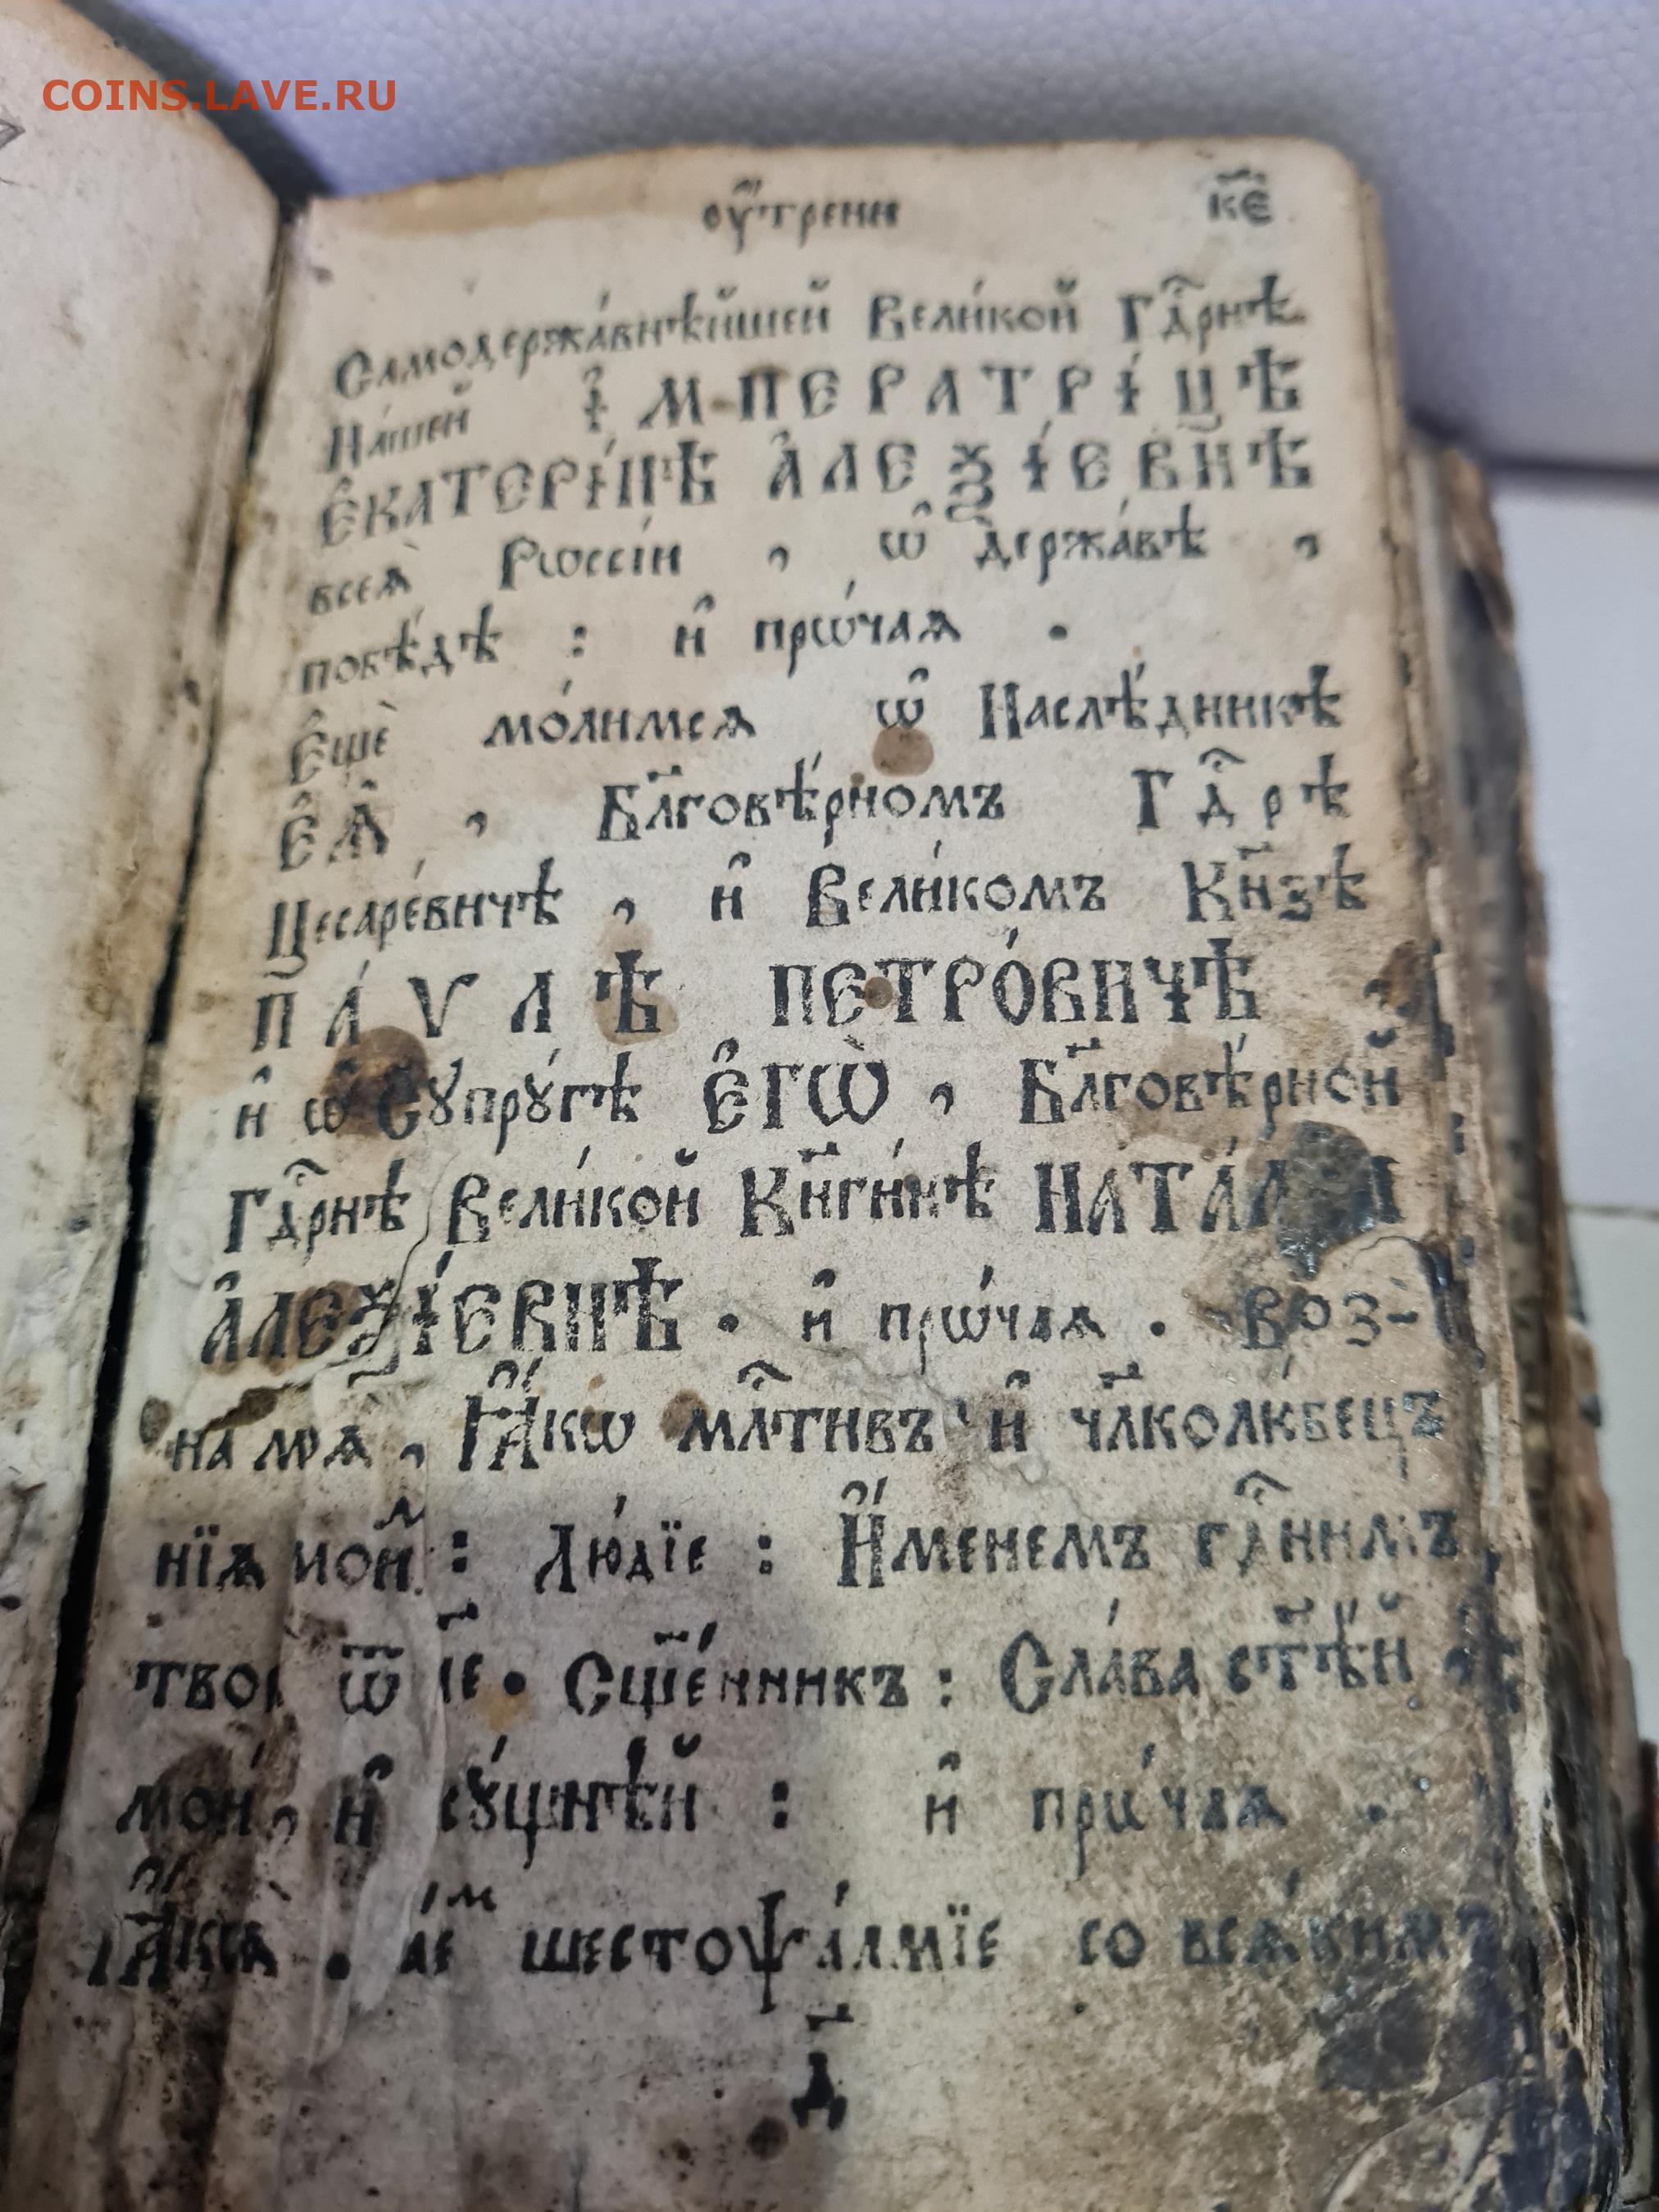 COINS.LAVE.RU
оу҆́трени к҃е
Самодержа́внѣйшей Вели́кой Гдⷭ҇рнѣ
На́шей І҆МПЕРАТРІ́ЦѢ
Е҆КАТЕРІ́НѢ А҆ЛЕѮІ́ЕВНѢ
всеѧ̀ Рѡссі́и , ѡ҆ держа́вѣ ,
побѣ́дѣ : и҆ прѡ́чаѧ .
Е҆щѐ мо́лимсѧ ѡ҆ Наслѣ́дникѣ
Е҆Ѧ̀ , Бл҃говѣ́рномъ Гдⷭ҇рѣ
Цесаре́вичѣ , и҆ Вели́комъ Кн҃зѣ
ПА́ѴЛѢ ПЕТРО́ВИЧѢ
и҆ ѡ҆ Сꙋпрꙋ́гѣ Е҆ГѠ̀ , Бл҃говѣ́рной
Гдⷭ҇рнѣ Вели́кой Кн҃ги́нѣ
А҆ЛЕѮІ́ЕВНѢ . и҆ прѡ́чаѧ . Воз-
Ꙗ҆́кѡ млⷭ҇тивъ и҆ чл҃колю́бецъ
Лю́дїе : И҆́менемъ гдⷭ҇нимъ
Сщ҃е́нникъ : Сла́ва ст҃ѣ́й
и҆ сꙋ́щнѣй : и҆ прѡ́чаѧ
шестоѱа́лмїе со всѧ́кимъ
д҃